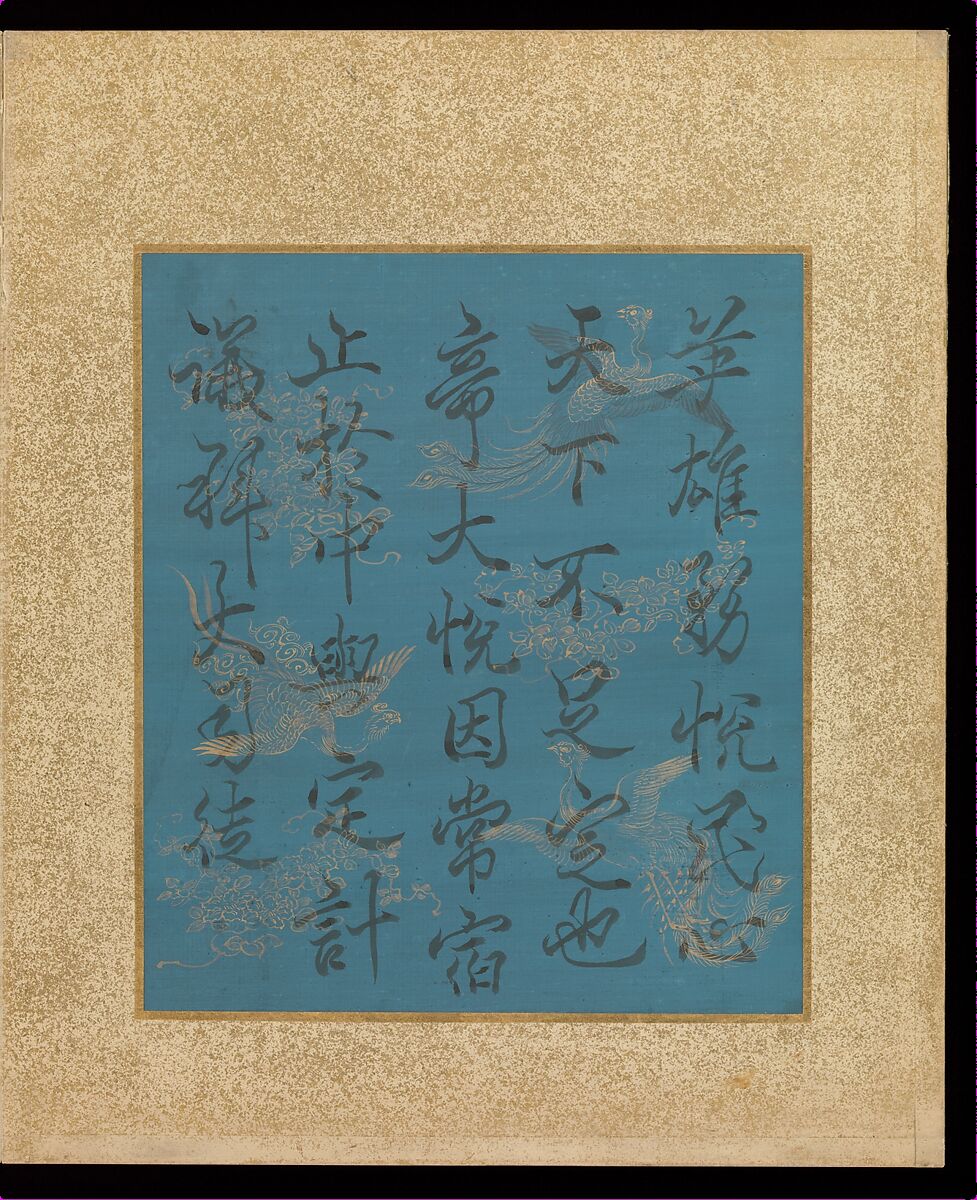 英雄務悅民心
天下不足定也
帝大悅因常宿
止中與定計
議拜大司徒